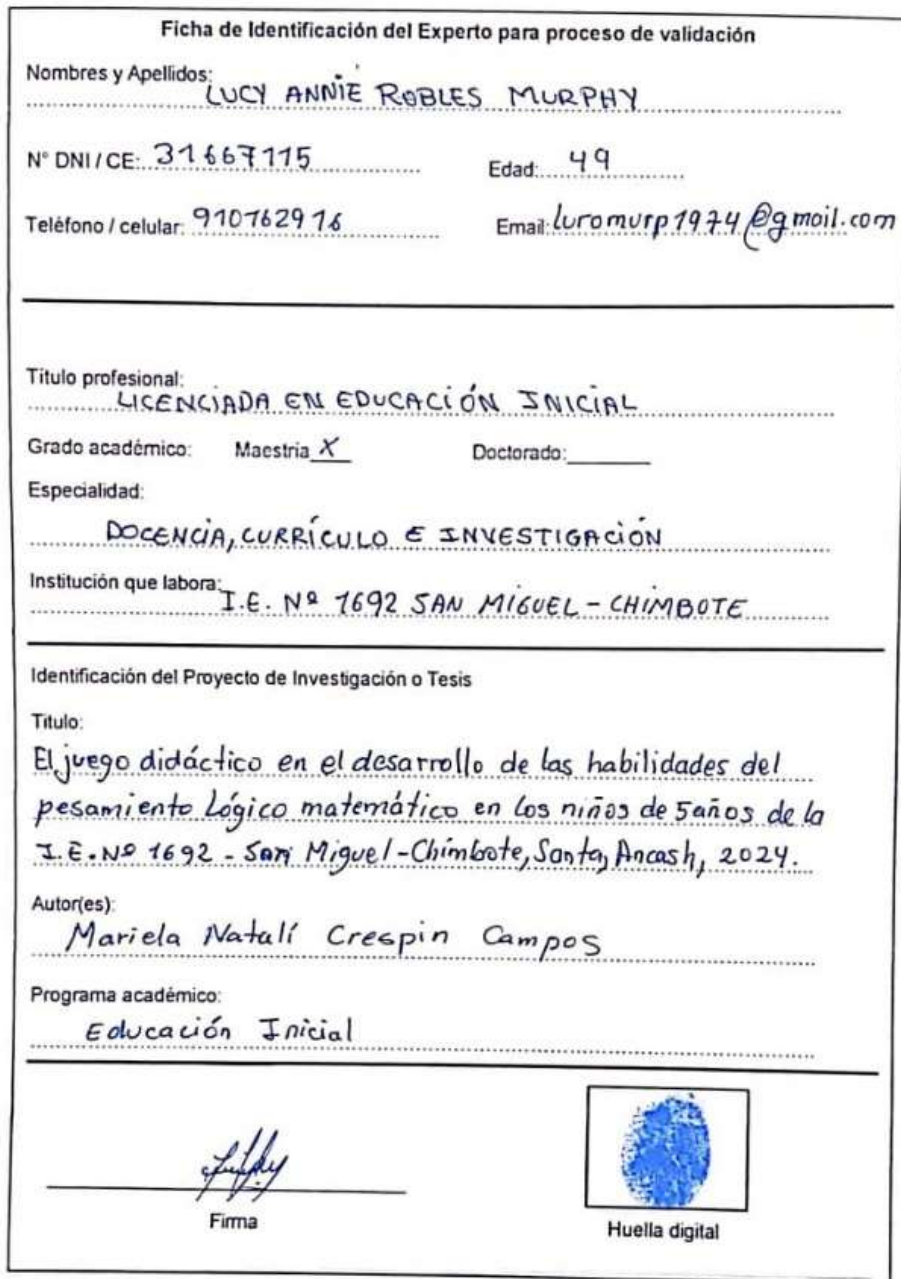 Ficha de Identificación del Experto para proceso de validación
Nombres y Apellidos: LUCY ANNIE ROBLES MURPHY
N° DNI / CE: 31667115 Edad: 49
Teléfono / celular: 910762916 Email: luromurp1974@gmail.com
Título profesional:
LICENCIADA EN EDUCACIÓN INICIAL
Grado académico: Maestría X Doctorado:
Especialidad:
DOCENCIA, CURRÍCULO E INVESTIGACIÓN
Institución que labora: I.E. Nº 1692 SAN MIGUEL - CHIMBOTE
Identificación del Proyecto de Investigación o Tesis
Título:
El juego didáctico en el desarrollo de las habilidades del
pesamiento Lógico matemático en los niños de 5años de la
I.E. Nº 1692 - San Miguel-Chimbote, Santa, Ancash, 2024.
Autor(es):
Mariela Natalí Crespin Campos
Programa académico:
Educación Inicial
Firma Huella digital